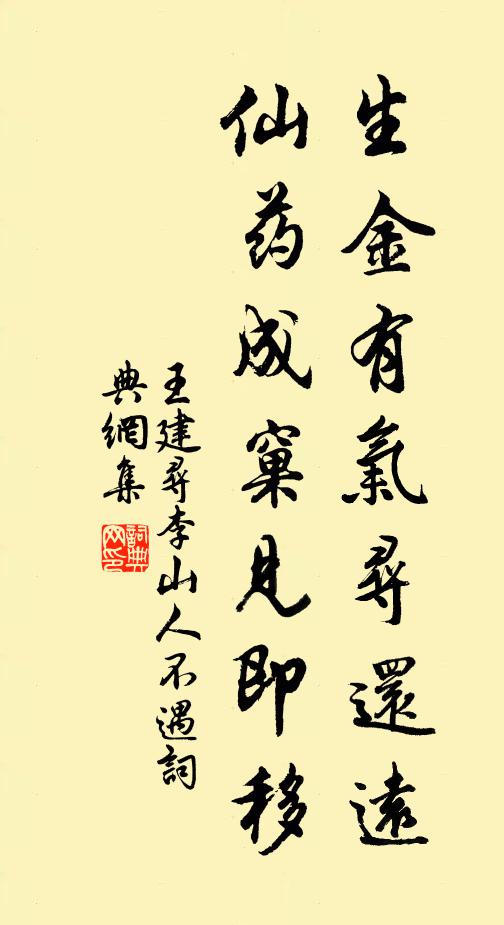 生金有氣尋還遠
仙药成窠見即移
王建尋李山人不遇詞
典網集
詞典
网印